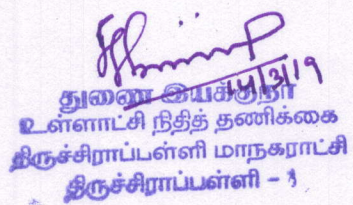 14/3/19
துணை இயக்குநர்
உள்ளாட்சி நிதித் தணிக்கை
திருச்சிராப்பள்ளி மாநகராட்சி
திருச்சிராப்பள்ளி - 1